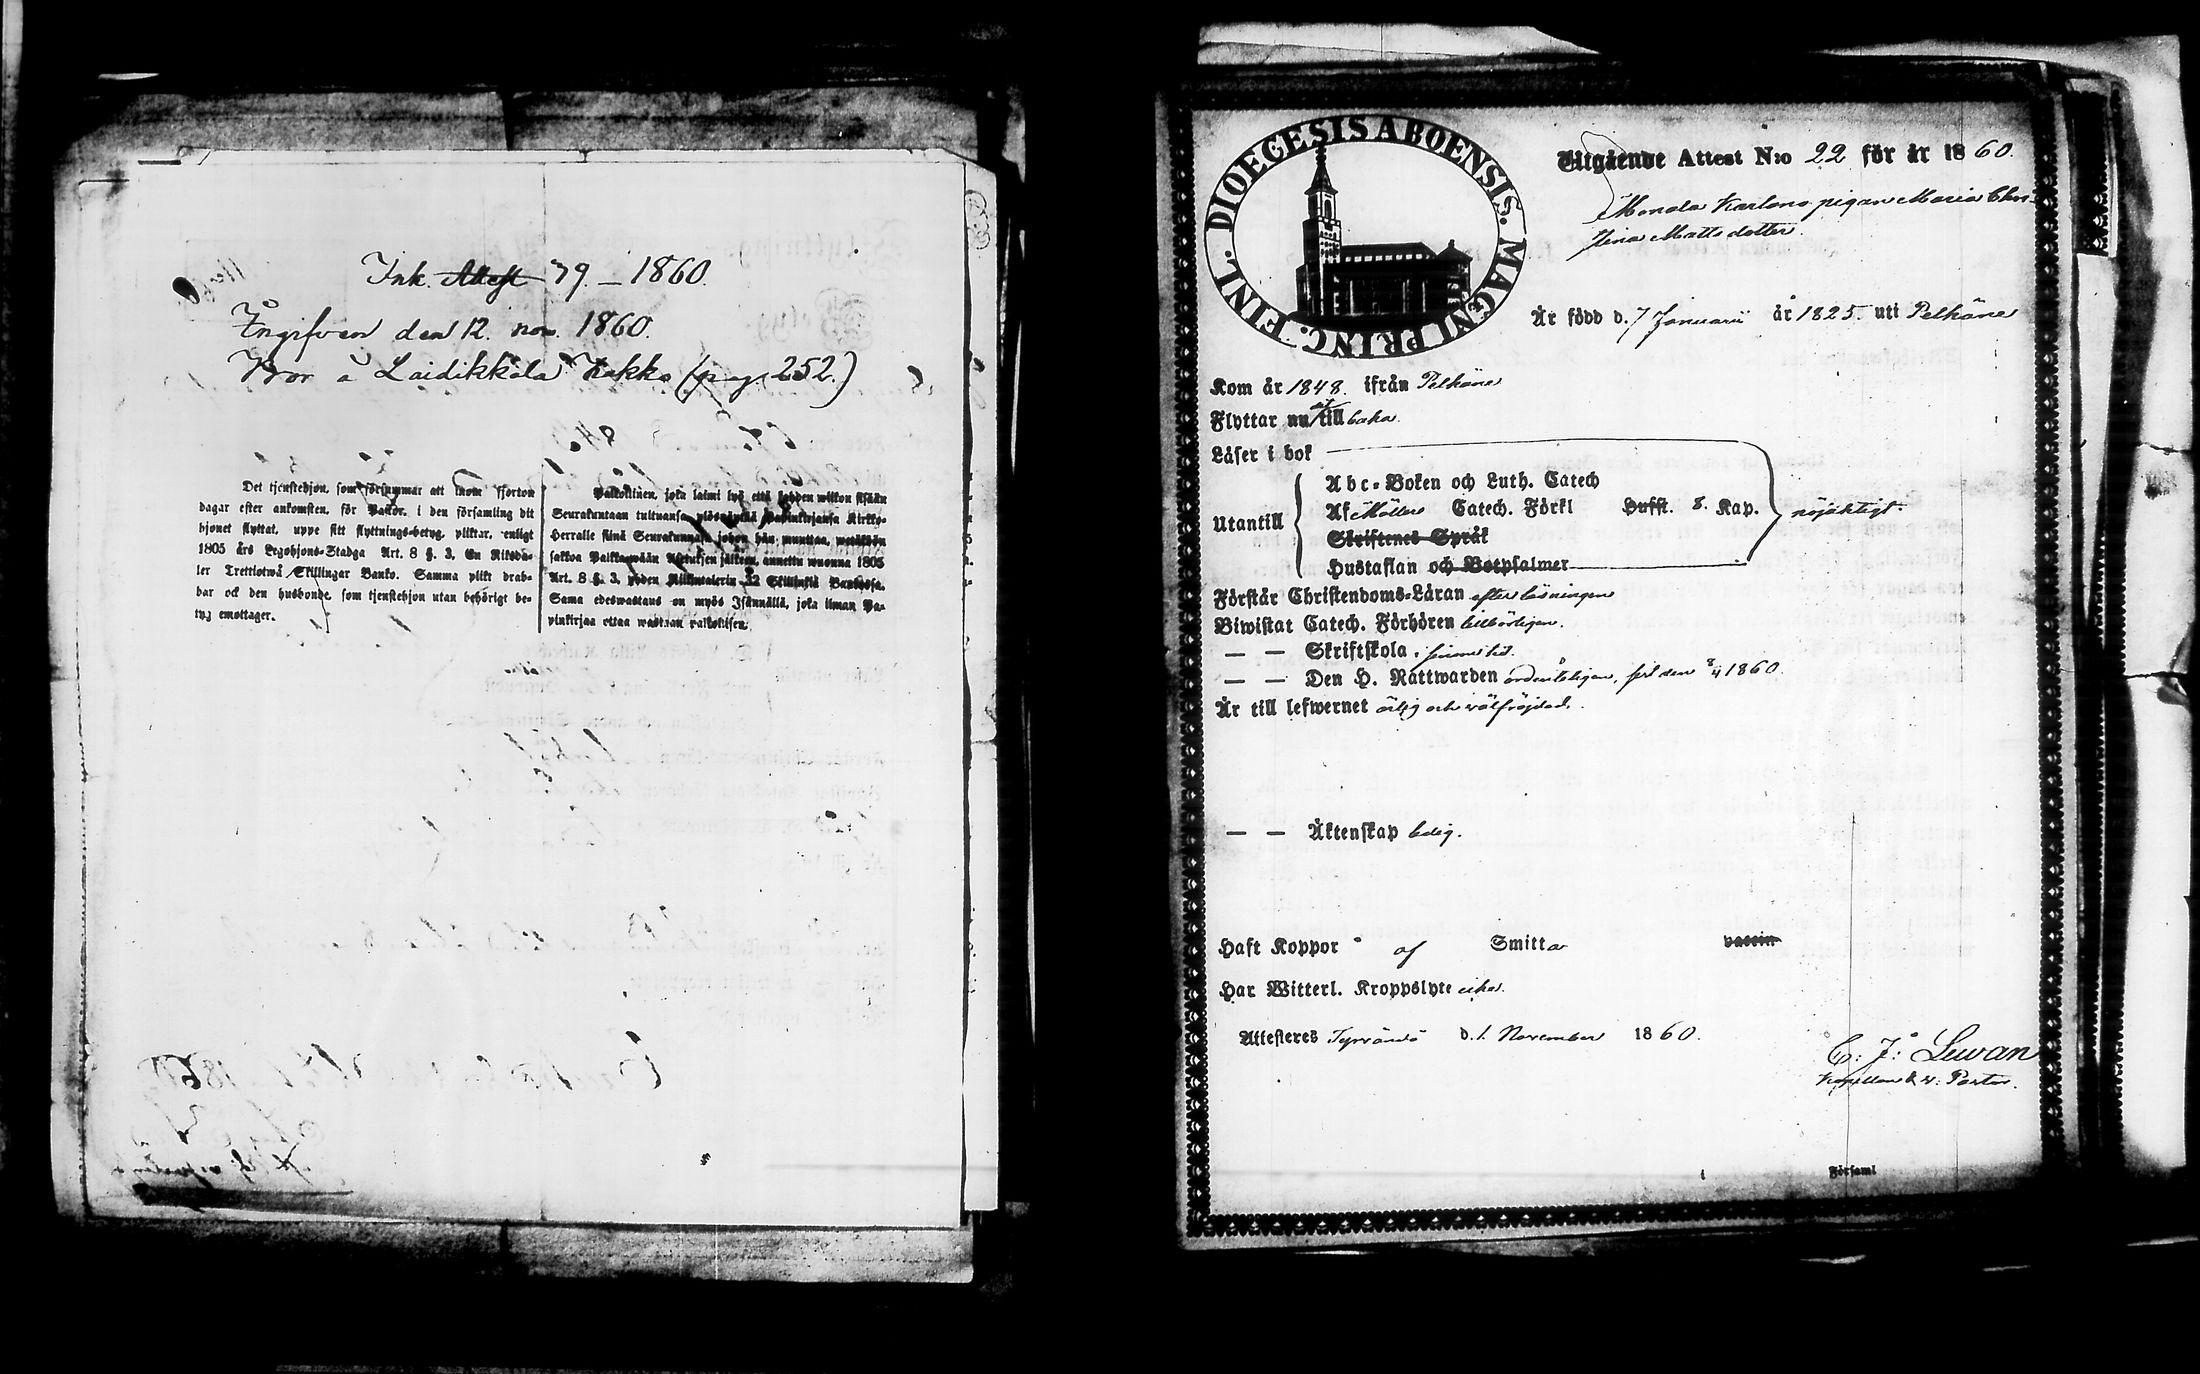 Ink. Attest 79. – 1860.
Ingifven den 12. nov. 1860.
Bor å Laidikkala Kakko (pag. 252.)
Det tjenstehjon, som försummar att inom fjorton
dagar efter ankomsten, för Pastor, i den församling dit
hjonet flyttat, uppte sitt flyttnings-betyg, pliktar, enligt
1805 års Legohjons-Stadga Art. 8 §. 3, En Riksda-
ler Trettiotwå Skillingar Banko. Samma plikt drab-
bar ock den husbonde, som tjenstehjon utan behörigt be-
tyg emottager.
Palkollinen, joka laimi lyö että kahden wiikon sisään
Seurakuntaan tultuansa ylösnäyttää Papinkirjansa Kirkko-
Herralle siinä Seurakunnassa johon hän muuttaa, wetäköön
sakkoa Palkkawään Asetuksen jälkeen, annettu wuonna 1805
Art. 8 §. 3, yhden Riikintalerin 32 Skillinkiä Bankossa.
Sama edeswastaus on myös Isännällä, joka ilman Pa-
pinkirjaa ottaa wastaan palkollisen.
DIOECESIS ABOENSIS. MAGNI PRINC. FINL.
Utgående Attest N:o 22 för år 1860.
Karlans pigan Maria Chris-
tina Mattsdotter.
Är född d. 7 Januarii år 1825. uti Pelkäne
Kom år 1848. ifrån Pelkäne
Flyttar nu dit tillbaka.
Läser i bok
Utantill
Abc-Boken och Luth. Catech
Af Möllers Catech. Förkl Hufst. 8. Kap. nöjaktigt.
Skriftenes Språk
Hustaflan och Botpsalmer
Förstår Christendoms-Läran efter läsningen
Biwistat Catech. Förhören tillbörligen.
— — Skriftskola
— — Den H. Nattwarden ordenteligen, sist den 8/4 1860.
Är till lefwernet ärlig och välfräjdad.
— — Äktenskap ledig.
Haft Koppor af Smitta vaccin
Har Witterl. Kroppslyte icke.
Attesteres Tyrväntö d. 1. November 1860.
C: J: Lewan
Kapellan & v: Pastor.
Församl